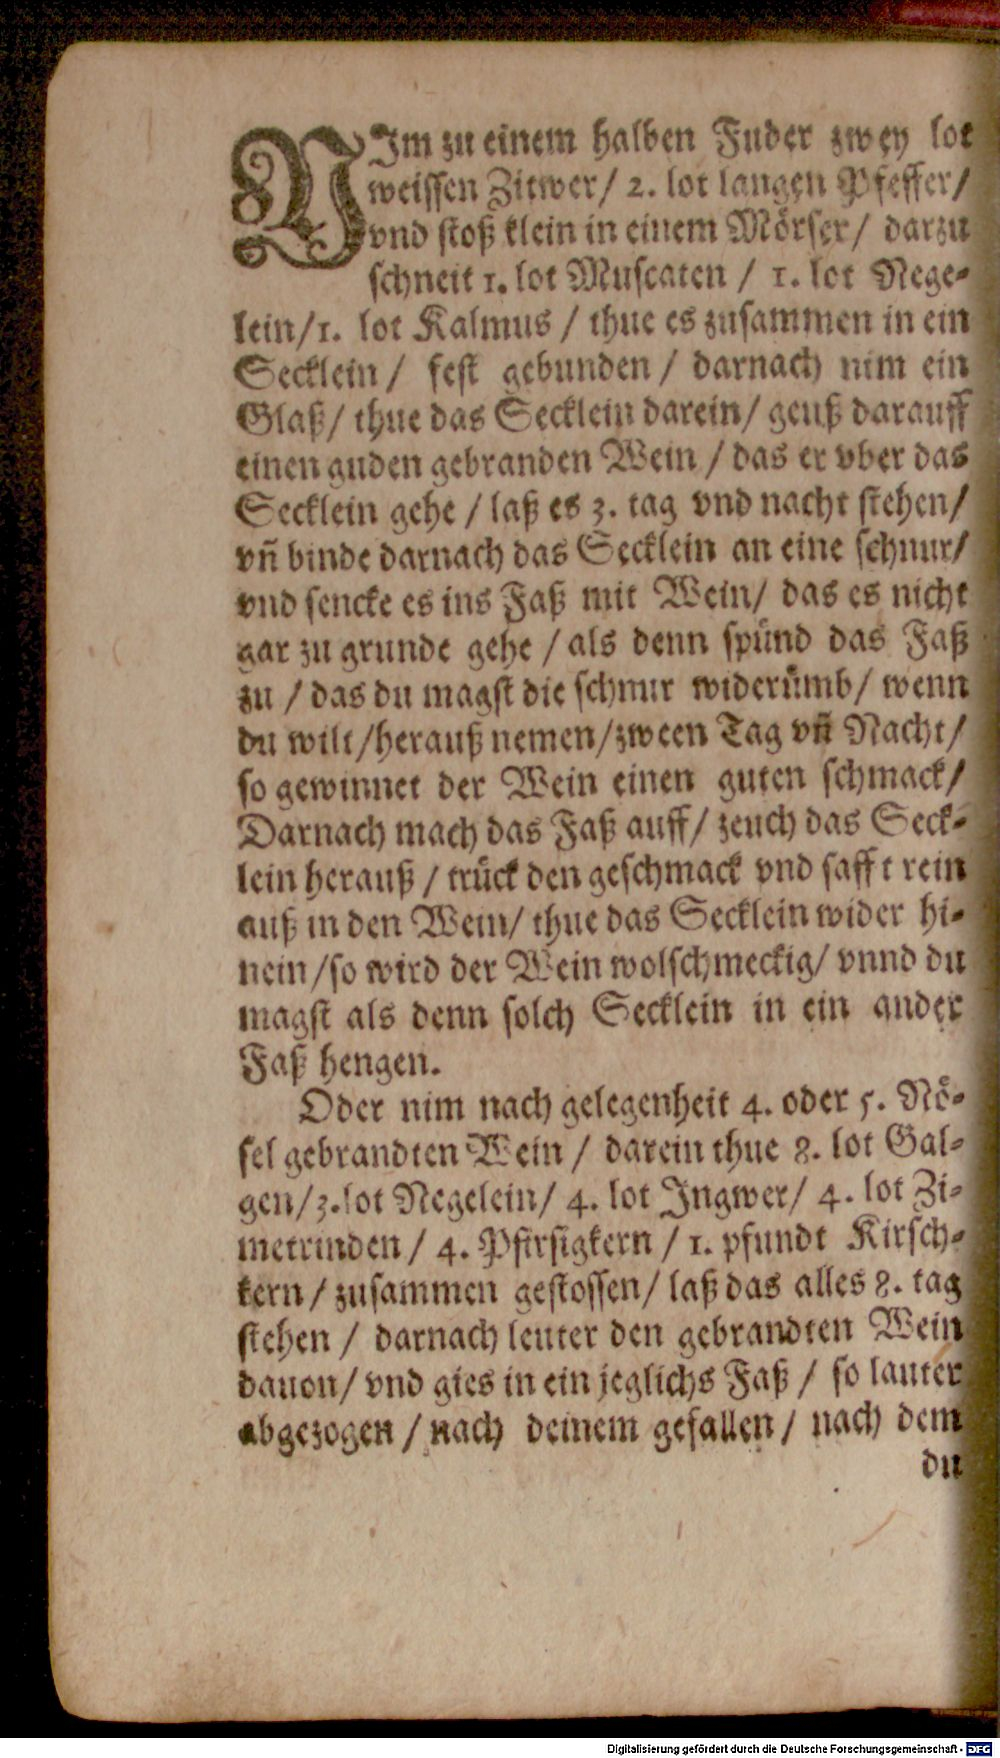 NIm zu einem halben Fuder zwey lot
weissen Zitwer/ 2. lot langen Pfeffer/
vnd stoß klein in einem Mörser/ darzu
schneit 1. lot Muscaten / 1. lot Nege-
lein/1. lot Kalmus / thue es zusammen in ein
Secklein / fest gebunden / darnach nim ein
Glaß/ thue das Secklein darein/ geuß darauff
einen guden gebranden Wein / das er vber das
Secklein gehe / laß es 3. tag vnd nacht stehen/
vñ binde darnach das Secklein an eine schnur/
vnd sencke es ins Faß mit Wein/ das es nicht
gar zu grunde gehe / als denn spünd das Faß
zu / das du magst die schnur widerümb/ wenn
du wilt/herauß nemen/zween Tag vñ Nacht/
so gewinnet der Wein einen guten schmack/
Darnach mach das Faß auff/ zeuch das Seck-
lein herauß / trück den geschmack vnd safft rein
auß in den Wein/ thue das Secklein wider hi-
nein/so wird der Wein wolschmeckig/ vnnd du
magst als denn solch Secklein in ein ander
Faß hengen.
Oder nim nach gelegenheit 4. oder 5. Nö-
sel gebrandten Wein / darein thue 8. lot Gal-
gen/3.lot Negelein/ 4. lot Ingwer/ 4. lot Zi-
metrinden / 4. Pfirsigkern / 1. pfundt Kirsch-
kern / zusammen gestossen/ laß das alles 8. tag
stehen / darnach leuter den gebrandten Wein
dauon/ vnd gies in ein jeglichs Faß / so lauter
abgezogen / nach deinem gefallen / nach dem
du
Digitalisierung gefördert durch die Deutsche Forschungsgemeinschaft - DFG